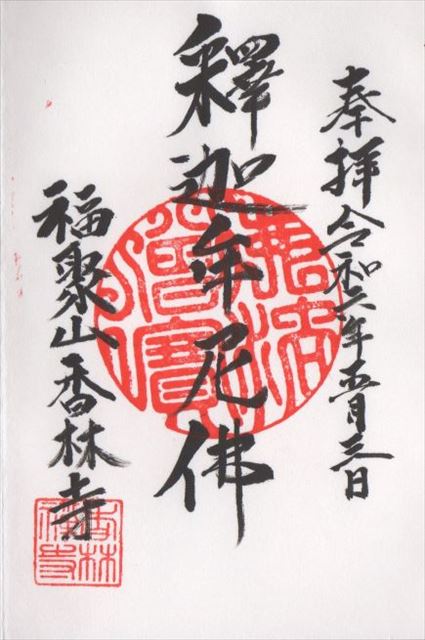 奉拝 令和六年五月三日
釋迦牟尼佛
佛法
僧寶
福聚山香林寺
香林
禅寺